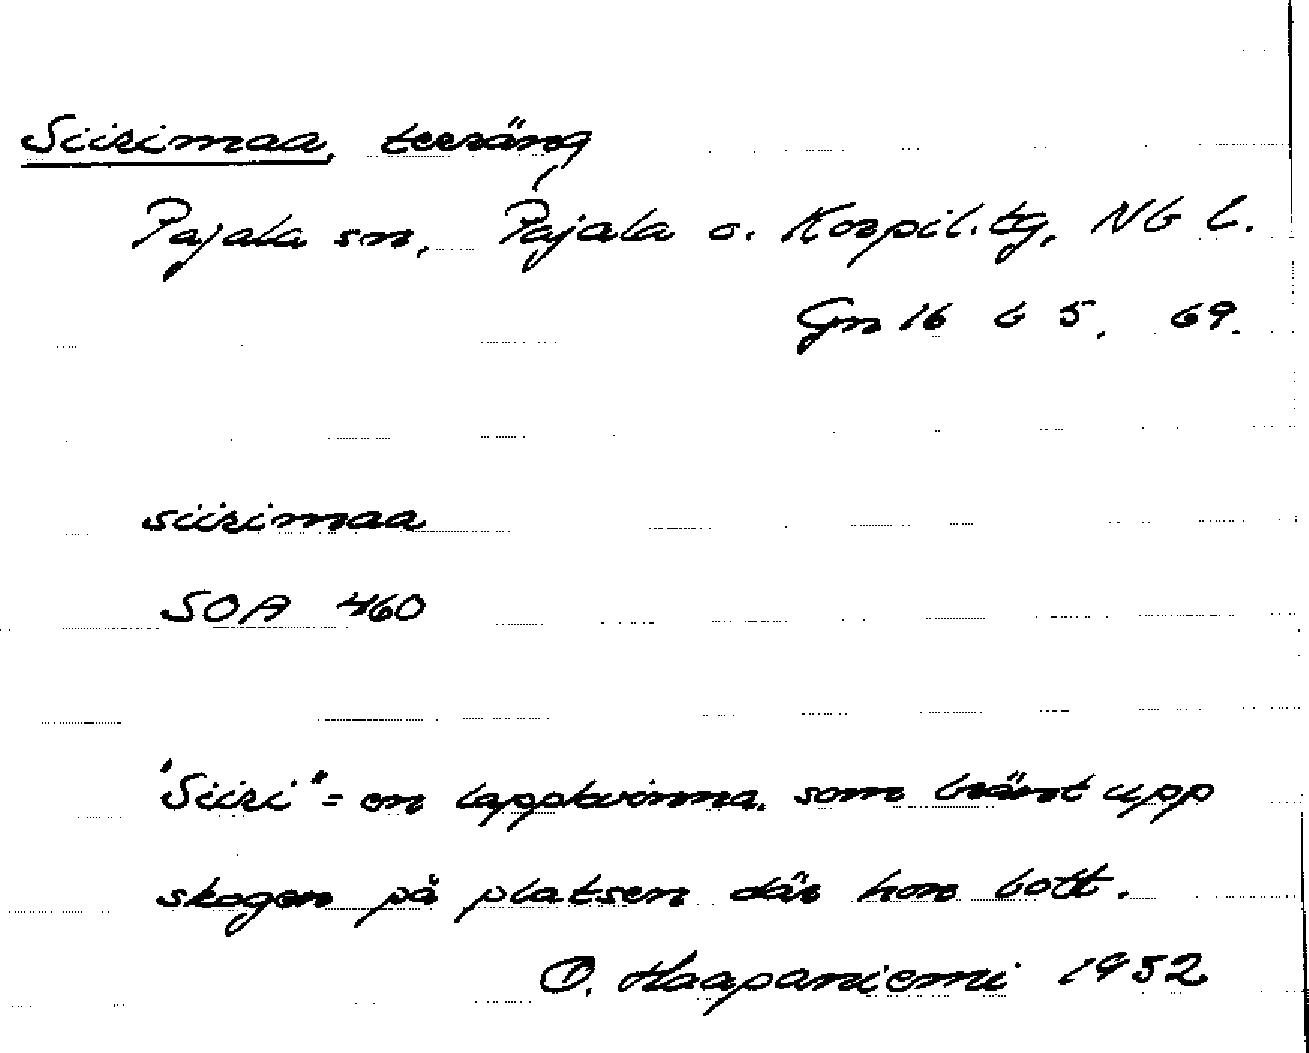 Siirimaa, terräng
Pajala sn, Pajala o. Korpil. tg, Nb l.
Gn 16 b 5, 69.
siirimaa
SOA 460
"Siiri" = en lappkvinna, som bränt upp
skogen på platsen där hon bott.
O. Haapaniemi 1952